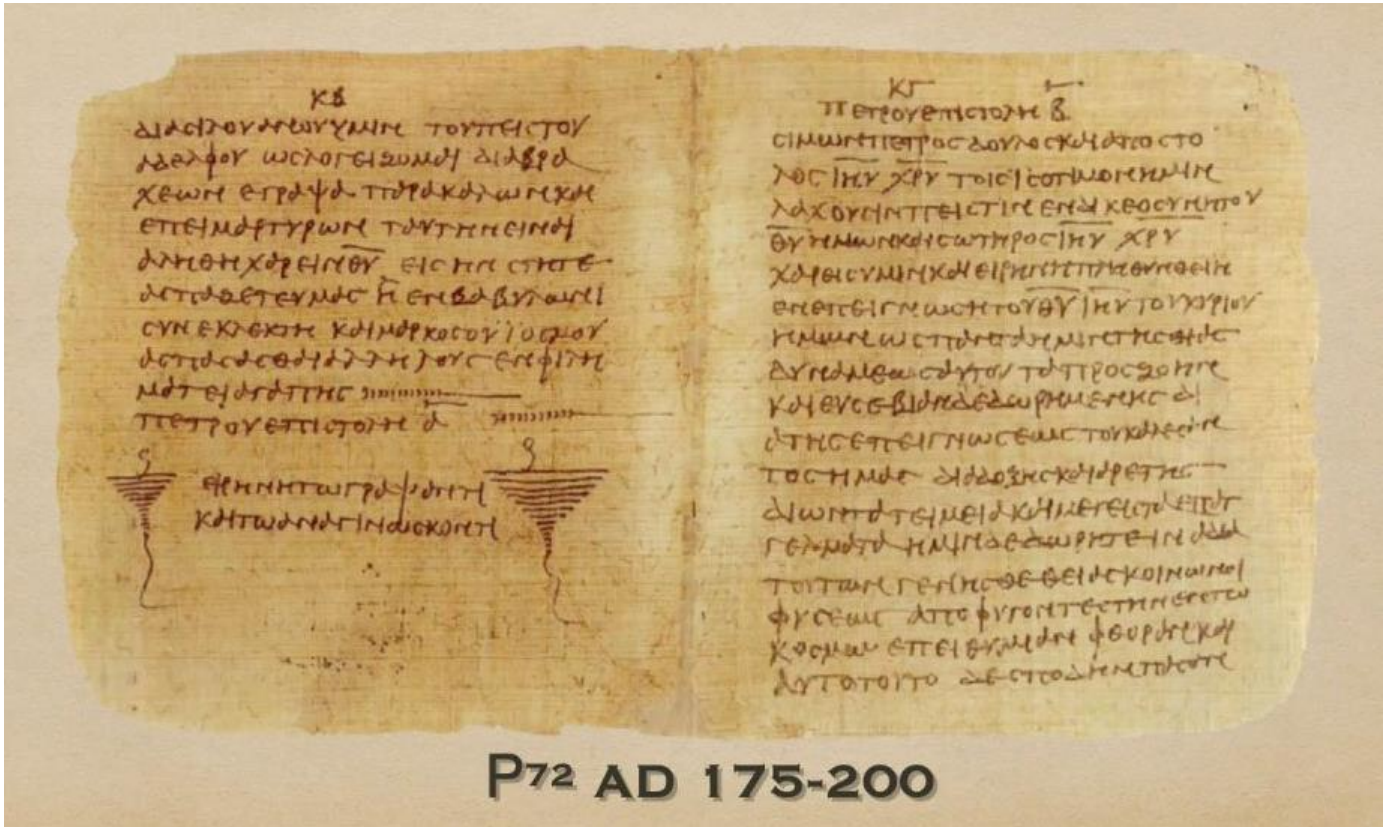 κβ
διαϲιλουανουυμιν τουπειϲτου
αδελφου ωϲλογειζομαι διαβρα
χεων εγραψα παρακαλωνκαι
επειμαρτυρων ταυτηνειναι
αληθηχαρεινθ̅υ̅ ειϲηνϲτητε
αϲπαζετευμαϲ η ενβαβυλωνι
ϲυνεκλεκτη καιμαρκοϲουϊοϲμου
αϲπαϲαϲθαιαλληλουϲ ενφιλη
ματειαγαπηϲ
πετρουεπιϲτολη α̅
ειρηνητωγραψαντι
καιτωαναγινωϲκοντι
κγ
πετρουεπιϲτολη β̅
ϲιμωνπετροϲδουλοϲκαιαποϲτο
λοϲι̅η̅υ̅ χ̅ρ̅υ̅ τοιϲιϲοτιμονημιν
λαχουϲινπειϲτιν ενδικεοϲυνητου
θ̅υ̅ημωνκαιϲωτηροϲι̅η̅υ̅ χ̅ρ̅υ̅
χαρειϲυμινκαιειρηνηπληθυνθειη
ενεπειγνωϲητουθ̅υ̅ι̅η̅υ̅τουκυριου
ημων ωϲπανταημιντηϲθιαϲ
δυναμεωϲαυτου ταπροϲζοην
καιευϲεβιανδεδωρημενηϲ δι
ατηϲεπειγνωϲεωϲ τουκαλεϲαν
τοϲημαϲ διαδοξηϲκαιαρετηϲ
διωντατειμειακαιμεγειϲταεπαγ
γελματα ημινδεδωρητεινα δια
τουτων γενηϲθεθειαϲκοινωνοι
φυϲεωϲ αποφυγοντεϲτηνεντω
κοϲμω επειθυμιαν φθορανκαι
αυτοτουτο δεϲποδηνπαϲαν
P72 AD 175-200